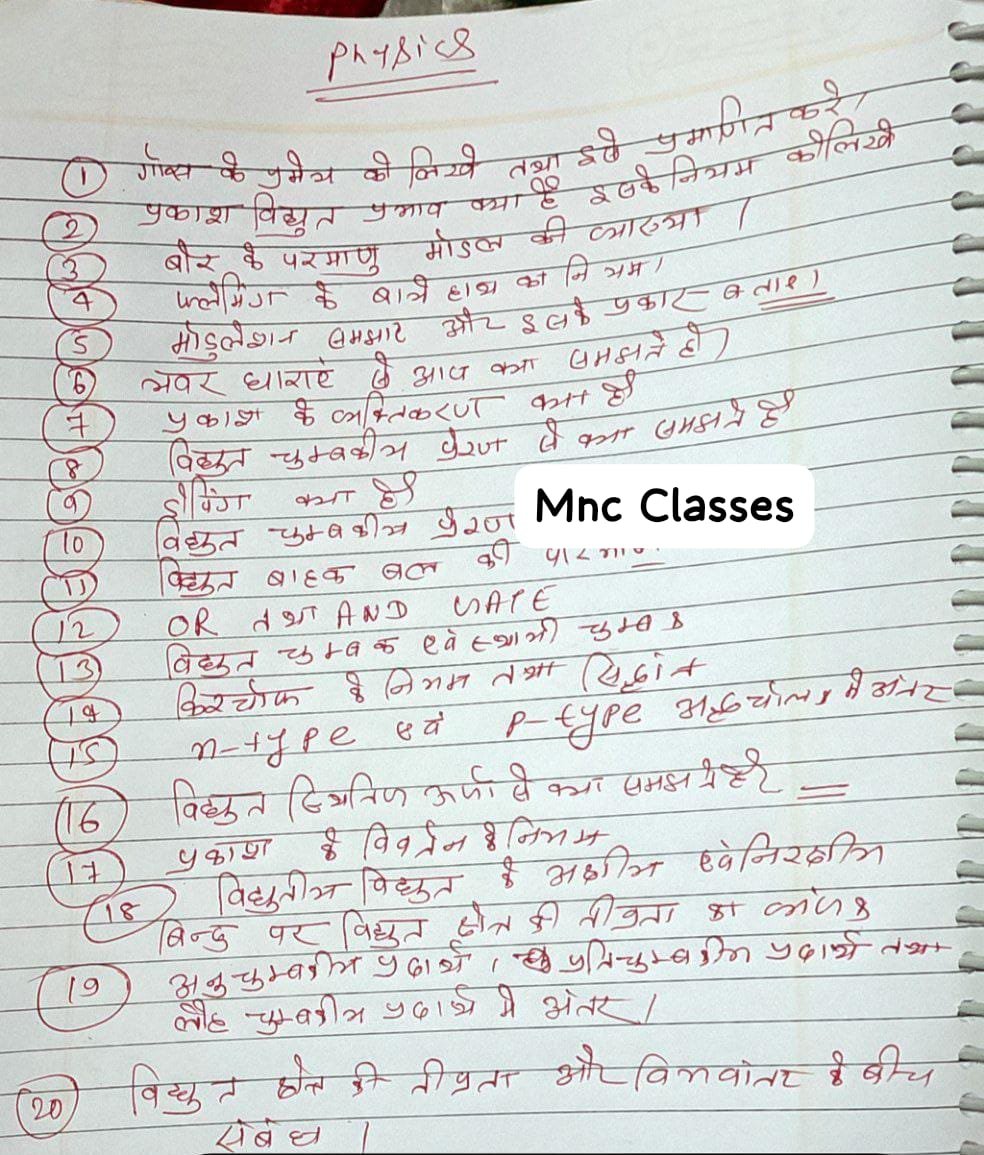 Physics
① गॉस के प्रमेय को लिखे तथा इसे प्रमाणित करे।
② प्रकाश विद्युत प्रभाव क्या है इसके नियम को लिखे
③ बौर के परमाणु मोडल की व्याख्या।
④ फ्लेमिंग के बाये हाथ का नियम।
⑤ मोडुलेशन समझाए और इसके प्रकार बताए।
⑥ भवर धाराएं से आप क्या समझते हो
⑦ प्रकाश के व्यक्तिकरण क्या है
⑧ विद्युत चुम्बकीय प्रेरण से क्या समझते है
⑨ डोपिंग क्या है
⑩ विद्युत चुम्बकीय प्रेरण
Mnc Classes
⑪ विद्युत बाहक बल की
⑫ OR तथा AND GATE
⑬ विद्युत चुम्बक एवं स्थायी चुम्बक
⑭ किरचौफ के नियम तथा सिद्धांत
⑮ n-type एवं p-type अर्द्धचालक मे अंतर
⑯ विद्युत स्थितिज ऊर्जा से क्या समझते है
⑰ प्रकाश के विवर्तन के नियम
⑱ विद्युतीय विद्युत के अक्षीय एवं निरक्षीय
बिन्दु पर विद्युत क्षेत्र की तीव्रता का व्यंजक
⑲ अनुचुम्बकीय पदार्थ, प्रतिचुम्बकीय पदार्थ तथा
लौह चुम्बकीय पदार्थ मे अंतर।
⑳ विद्युत क्षेत्र की तीव्रता और विभवांतर के बीच
संबंध।